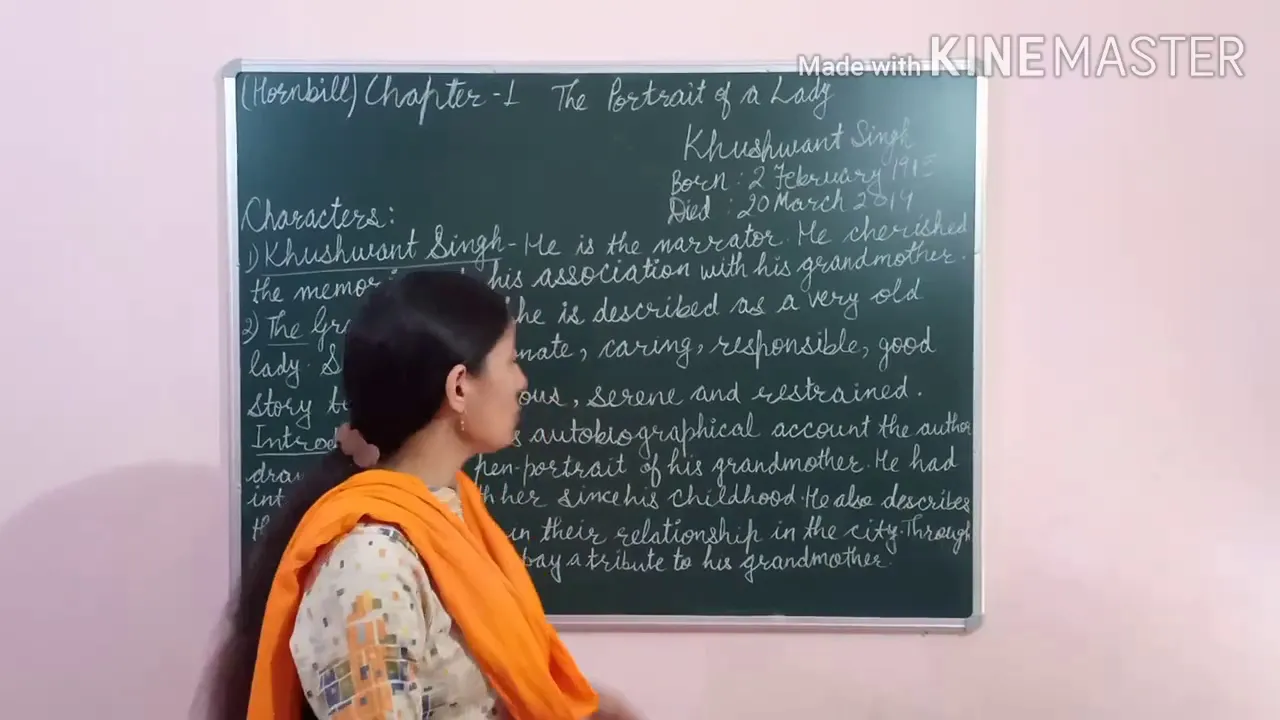 Made with KINEMASTER
(Hornbill) Chapter-1 The Portrait of a Lady
Khushwant Singh
Born : 2 February
Died : 20 March 2014
Characters:
1) Khushwant Singh - He is the narrator. He cherished
the his association with his grandmother.
2) The is described as a very old
lady. caring, responsible, good
story serene and restrained.
autobiographical account the author
pen-portrait of his grandmother. He had
her since his childhood. He also describes
in their relationship in the city. Through
pay a tribute to his grandmother.